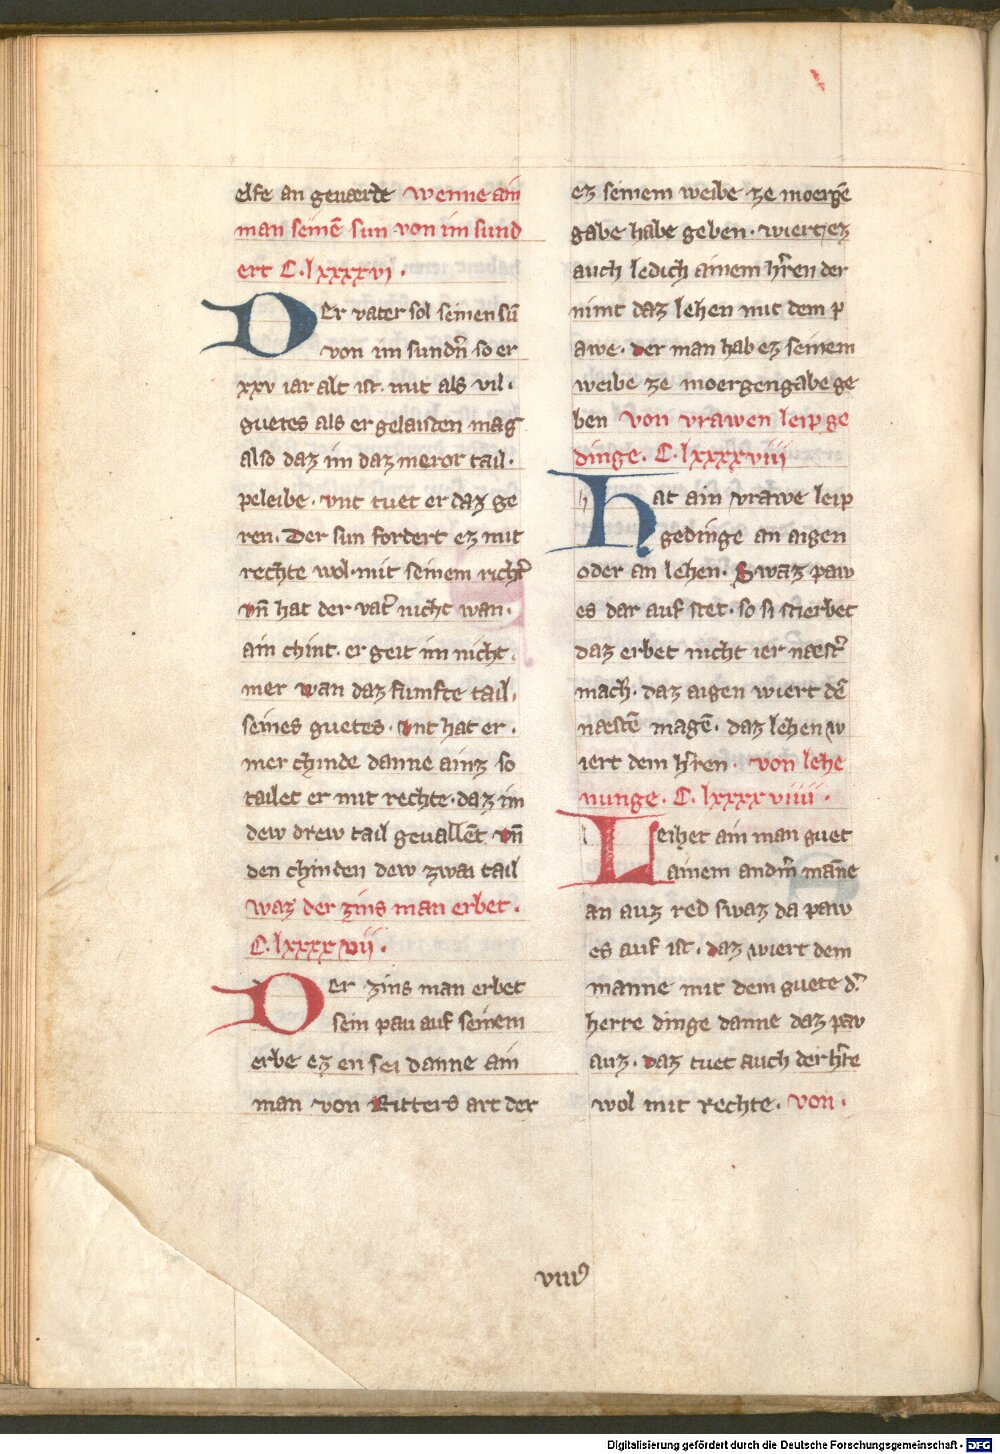 elfe an geuærde wenne ain
man seinē sun von im sund
ert C. lxxxxvi.
DEr vater sol seinen sū
von im sundn̄ so er
xxv iar alt ist. mit als vil.
guetes als er gelaisden mag
also daz im daz meror tail.
peleibe. vnt tuet er daz ge
ren. Der sun fordert ez mit
rechte wol. mit seinem richt̛
vn̄ hat der vat̛ nicht wan.
ain chint. er geit im nicht.
mer wan daz fumfte tail.
seines guetes. vnt hat er.
mer chinde danne ainz so
tailet er mit rechte. daz im
dew drew tail geuallēt vn̄
den chinden dew zwai tail
waz der zins man erbet.
C. lxxxxvii.
Der zins man erbet
sein pau auf seinem
erbe ez en sei danne ain
man von Ritters art der
ez seinem weibe ze moergē
gabe habe geben. wiert ez
auch ledich ainem hr̄en der
nimt daz lehen mit dem p
awe. der man hab ez seinem
weibe ze moergengabe ge
ben von vrawen leip ge
dinge. C. lxxxxviii
hat ain vrawe leip
gedinge an aigen
oder an lehen. Swaz paw
es dar auf stet. so si stierbet
daz erbet nicht ier næst̛
mach. daz aigen wiert dē
næstē magē. daz lehen w
iert dem hr̄en. von lehe
nunge. C. lxxxxviiii.
Leihet ain man guet
ainem andm̄ māne
an auz red swaz da paw
es auf ist. daz wiert dem
manne mit dem guete d̛
herre dinge danne daz paw
auz. daz tuet auch der hr̄e
wol mit rechte. von.
viiii⁹
Digitalisierung gefördert durch die Deutsche Forschungsgemeinschaft - DFG